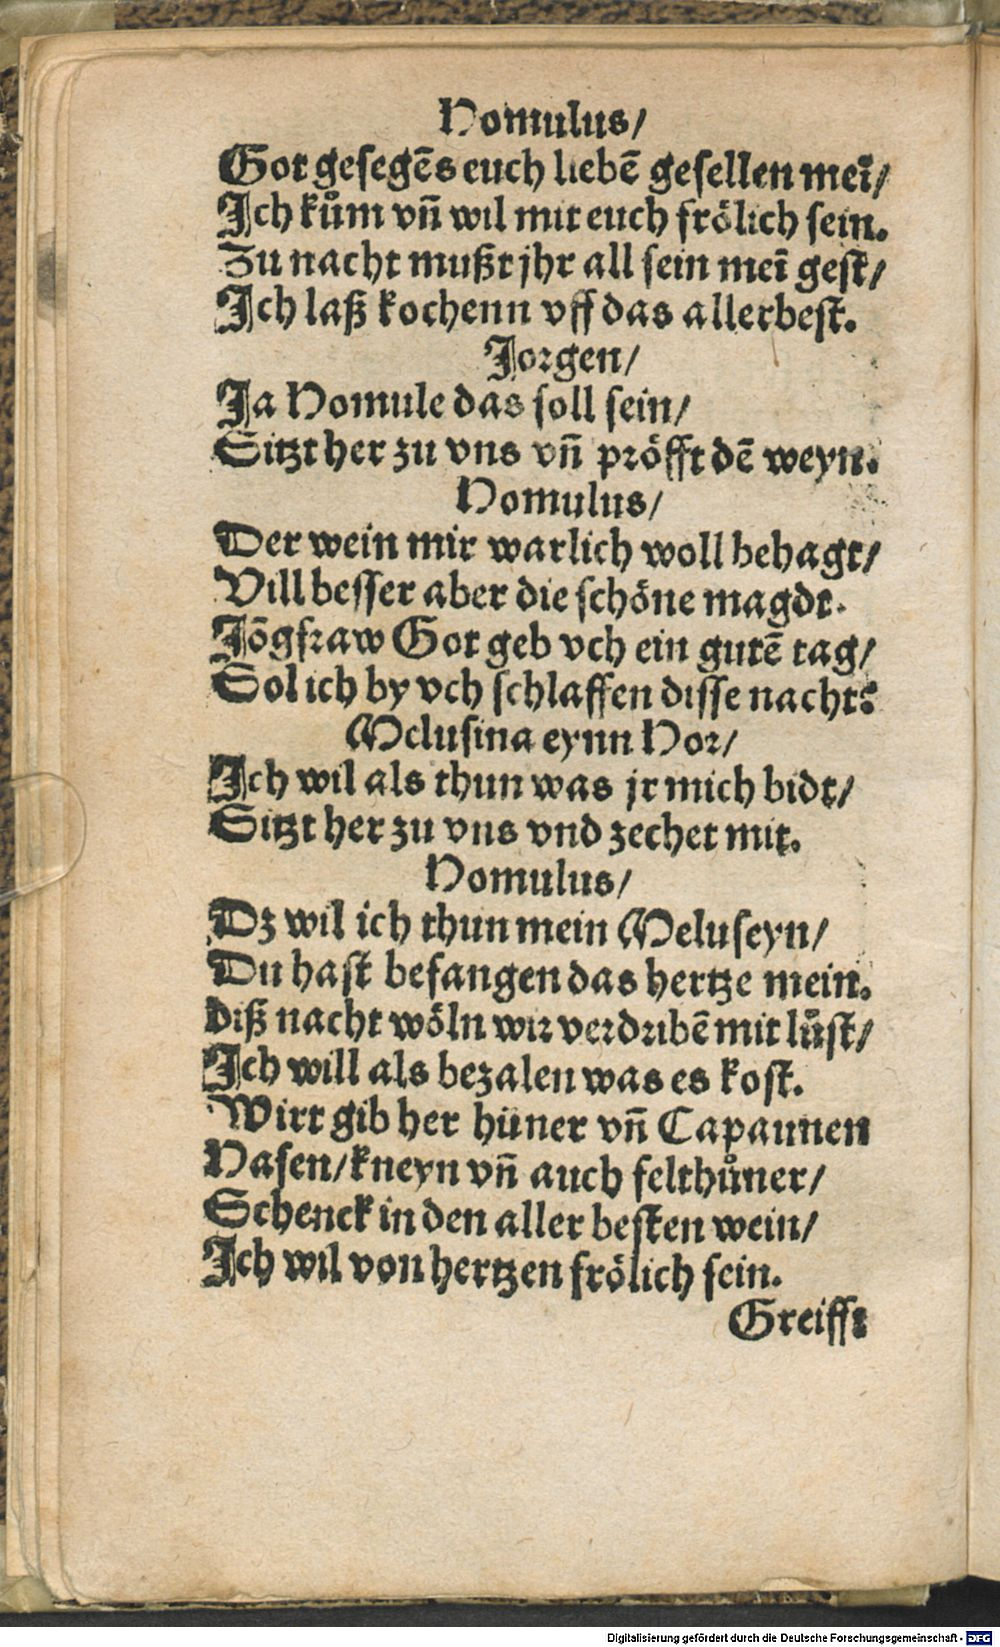 Homulus/
Got gesegēs euch liebē gesellen meī/
Ich kům vñ wil mit euch frölich sein.
Zu nacht mußt jhr all sein meī gest/
Ich laß kochenn vff das allerbest.
Jorgen/
Ja Homule das soll sein/
Sitzt her zu vns vñ pröfft dē weyn.
Homulus/
Der wein mir warlich woll behagt/
Vill besser aber die schöne magdt.
Jōgfraw Got geb vch ein gutē tag/
Sol ich by vch schlaffen disse nacht?
Melusina eynn Hor/
Ich wil als thun was jr mich bidt/
Sitzt her zu vns vnd zechet mit.
Homulus/
Dz wil ich thun mein Meluseyn/
Du hast befangen das hertze mein.
Diß nacht wöln wir verdribē mit lůst/
Ich will als bezalen was es kost.
Wirt gib her hüner vñ Capaunen
Hasen/kneyn vñ auch felthůner/
Schenck in den aller besten wein/
Ich wil von hertzen frölich sein.
Greifft
Digitalisierung gefördert durch die Deutsche Forschungsgemeinschaft - DFG